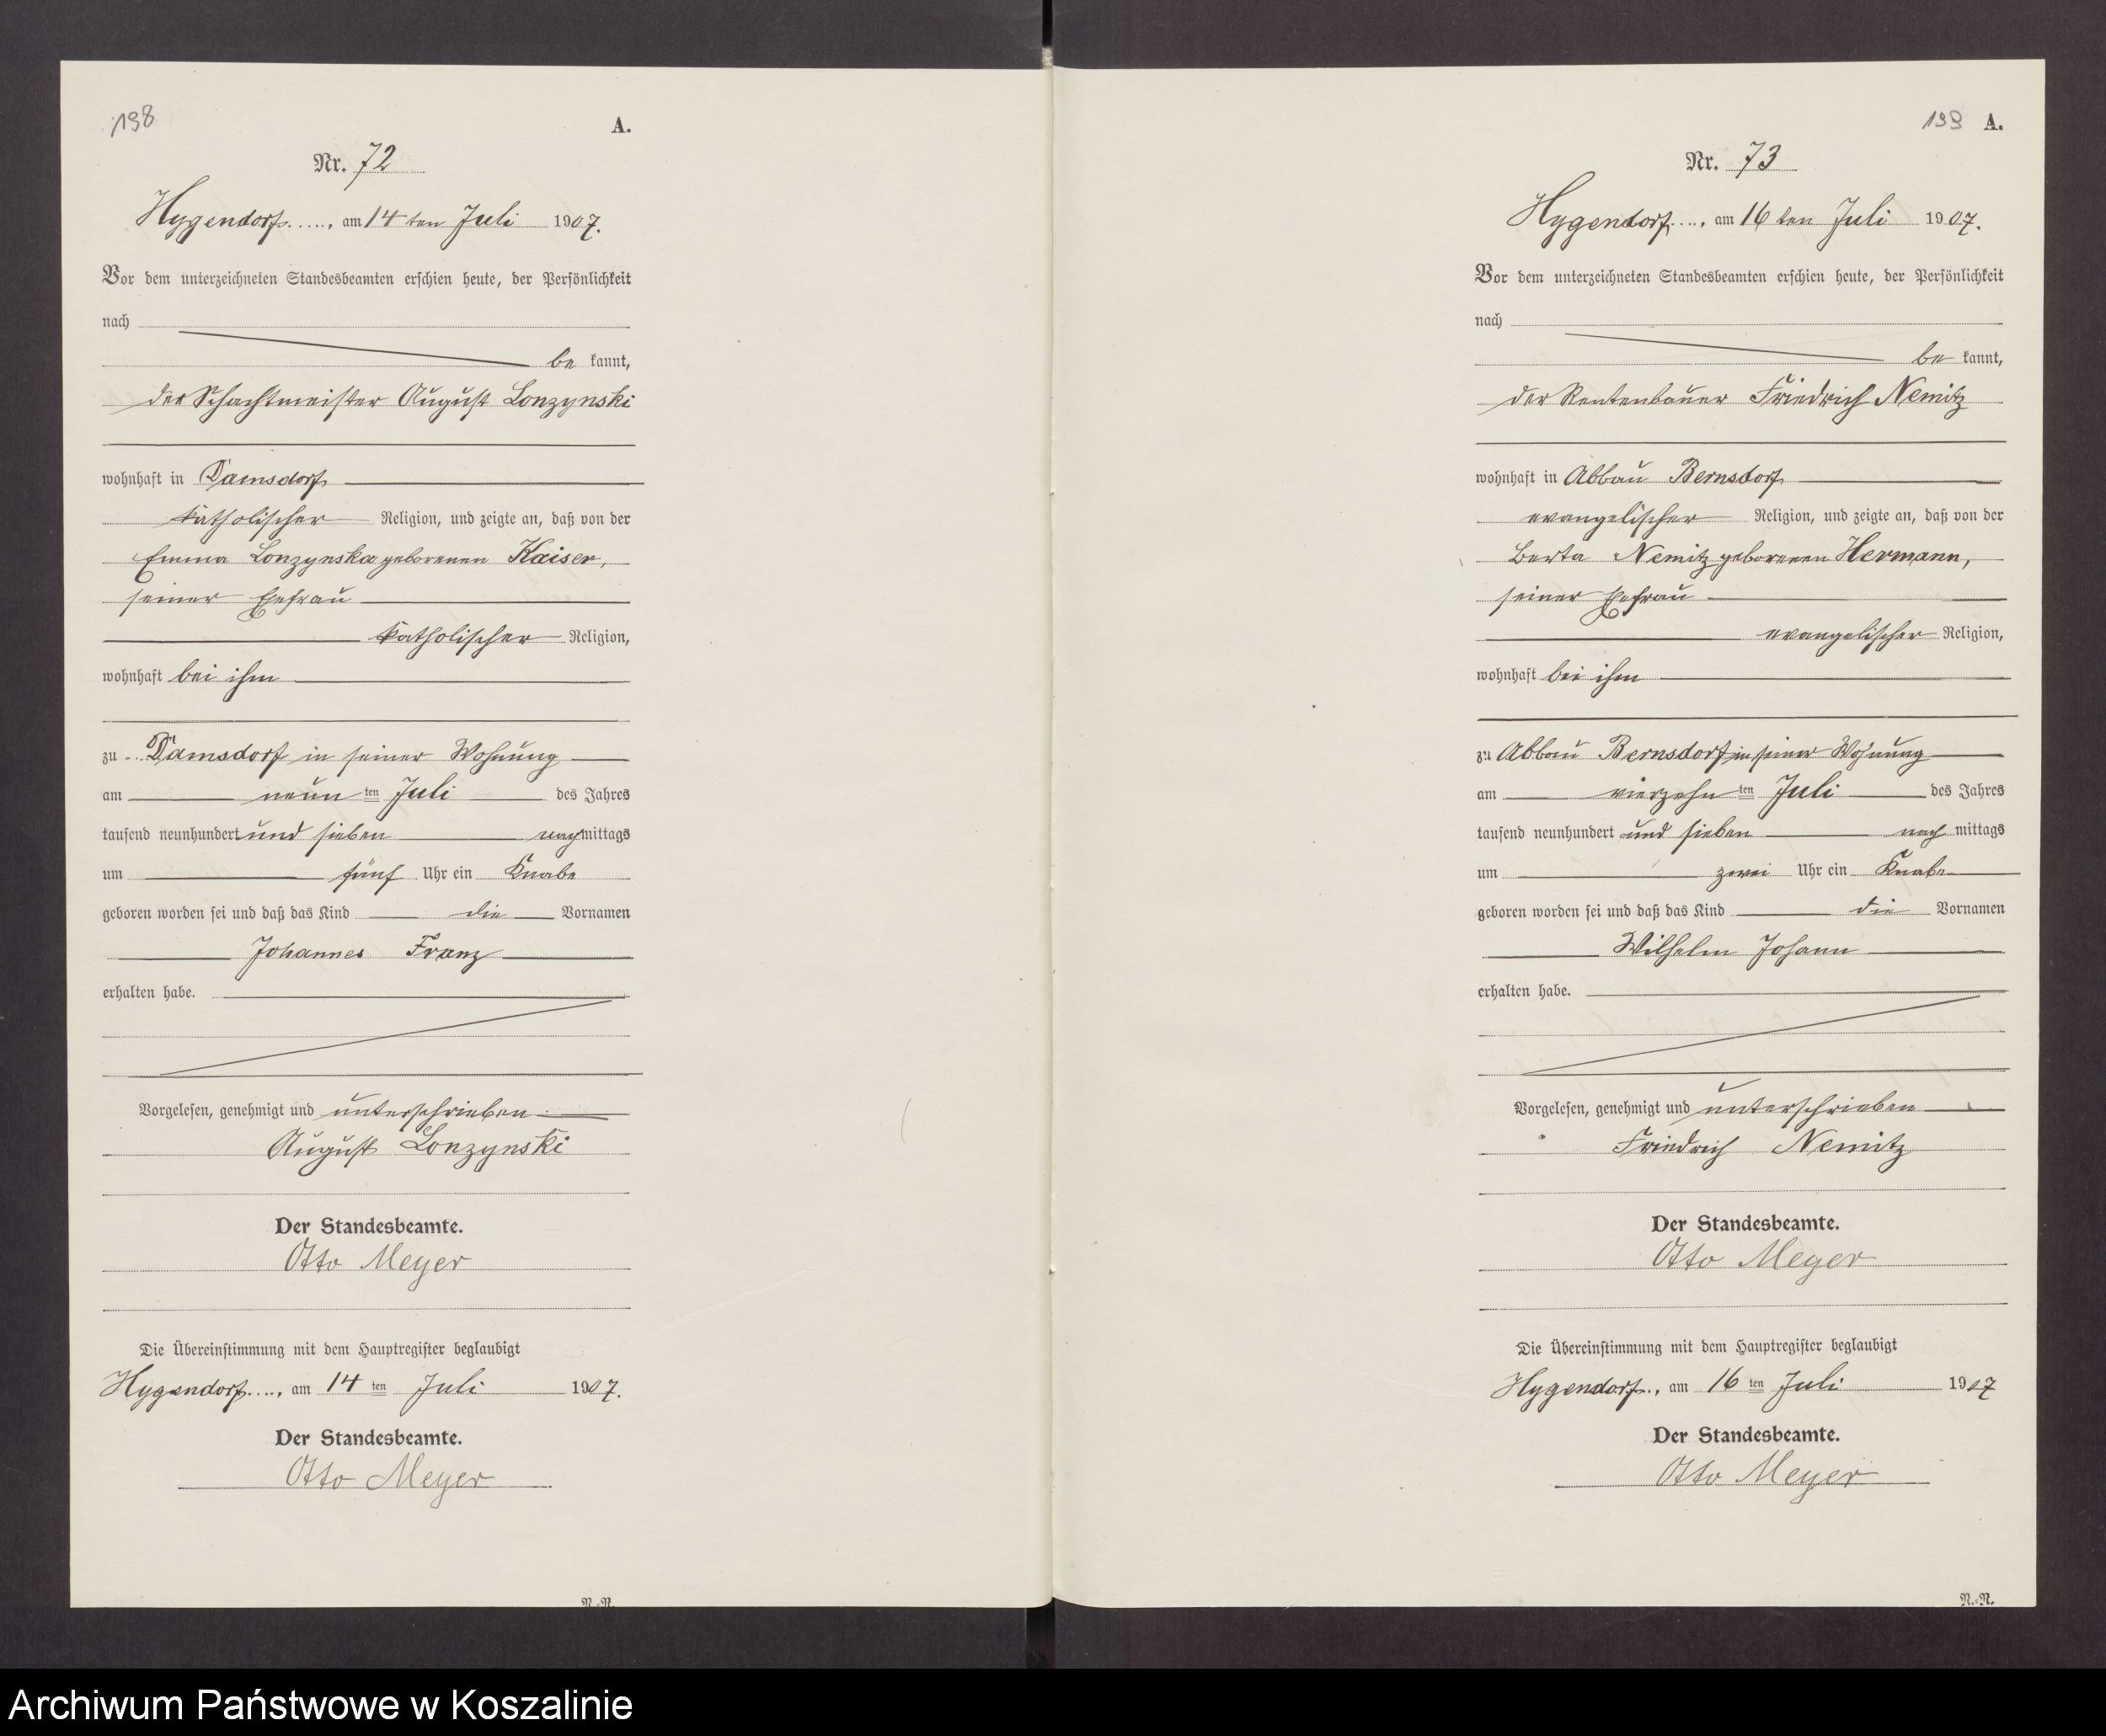 198
A.
Nr. 72
Hygendorf....., am 14 ten Juli 1907.
Vor dem unterzeichneten Standesbeamten erschien heute, der Persönlichkeit
nach
be kannt,
der Schachtmeister August Lonzynski
wohnhaft in Damsdorf
katholischer Religion, und zeigte an, daß von der
Emma Lonzynska geborenen Kaiser,
seiner Ehefrau
katholischer Religion,
wohnhaft bei ihm
zu Damsdorf in seiner Wohnung
am neun ten Juli des Jahres
tausend neunhundert und sieben nachmittags
um fünf Uhr ein Knabe
geboren worden sei und daß das Kind die Vornamen
Johannes Franz
erhalten habe.
Vorgelesen, genehmigt und unterschrieben
August Lonzynski
Der Standesbeamte.
Otto Meyer
Die Übereinstimmung mit dem Hauptregister beglaubigt
Hygendorf...., am 14 ten Juli 1907.
Der Standesbeamte.
Otto Meyer
N.-N.
199 A.
Nr. 73
Hygendorf...., am 16 ten Juli 1907.
Vor dem unterzeichneten Standesbeamten erschien heute, der Persönlichkeit
nach
be kannt,
der Rentenbauer Friedrich Nemitz
wohnhaft in Abbau Bernsdorf
evangelischer Religion, und zeigte an, daß von der
Berta Nemitz geborenen Hermann,
seiner Ehefrau
evangelischer Religion,
wohnhaft bei ihm
zu Abbau Bernsdorf in seiner Wohnung
am vierzehn ten Juli des Jahres
tausend neunhundert und sieben nach mittags
um zwei Uhr ein Knabe
geboren worden sei und daß das Kind die Vornamen
Wilhelm Johann
erhalten habe.
Vorgelesen, genehmigt und unterschrieben
Friedrich Nemitz
Der Standesbeamte.
Otto Meyer
Die Übereinstimmung mit dem Hauptregister beglaubigt
Hygendorf.., am 16 ten Juli 1907
Der Standesbeamte.
Otto Meyer
N.-N.
Archiwum Państwowe w Koszalinie